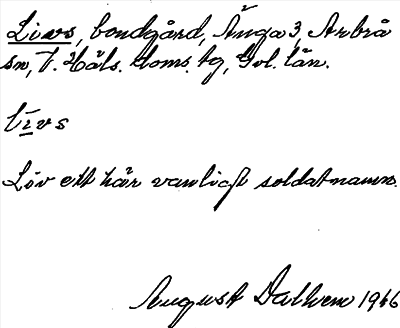 Livs, bondgård, Änga 3, Arbrå
sn, V. Häls. doms. tg, Gvl. län.
livs
Liv ett här vanligt soldatnamn.
August Dalhem 1966